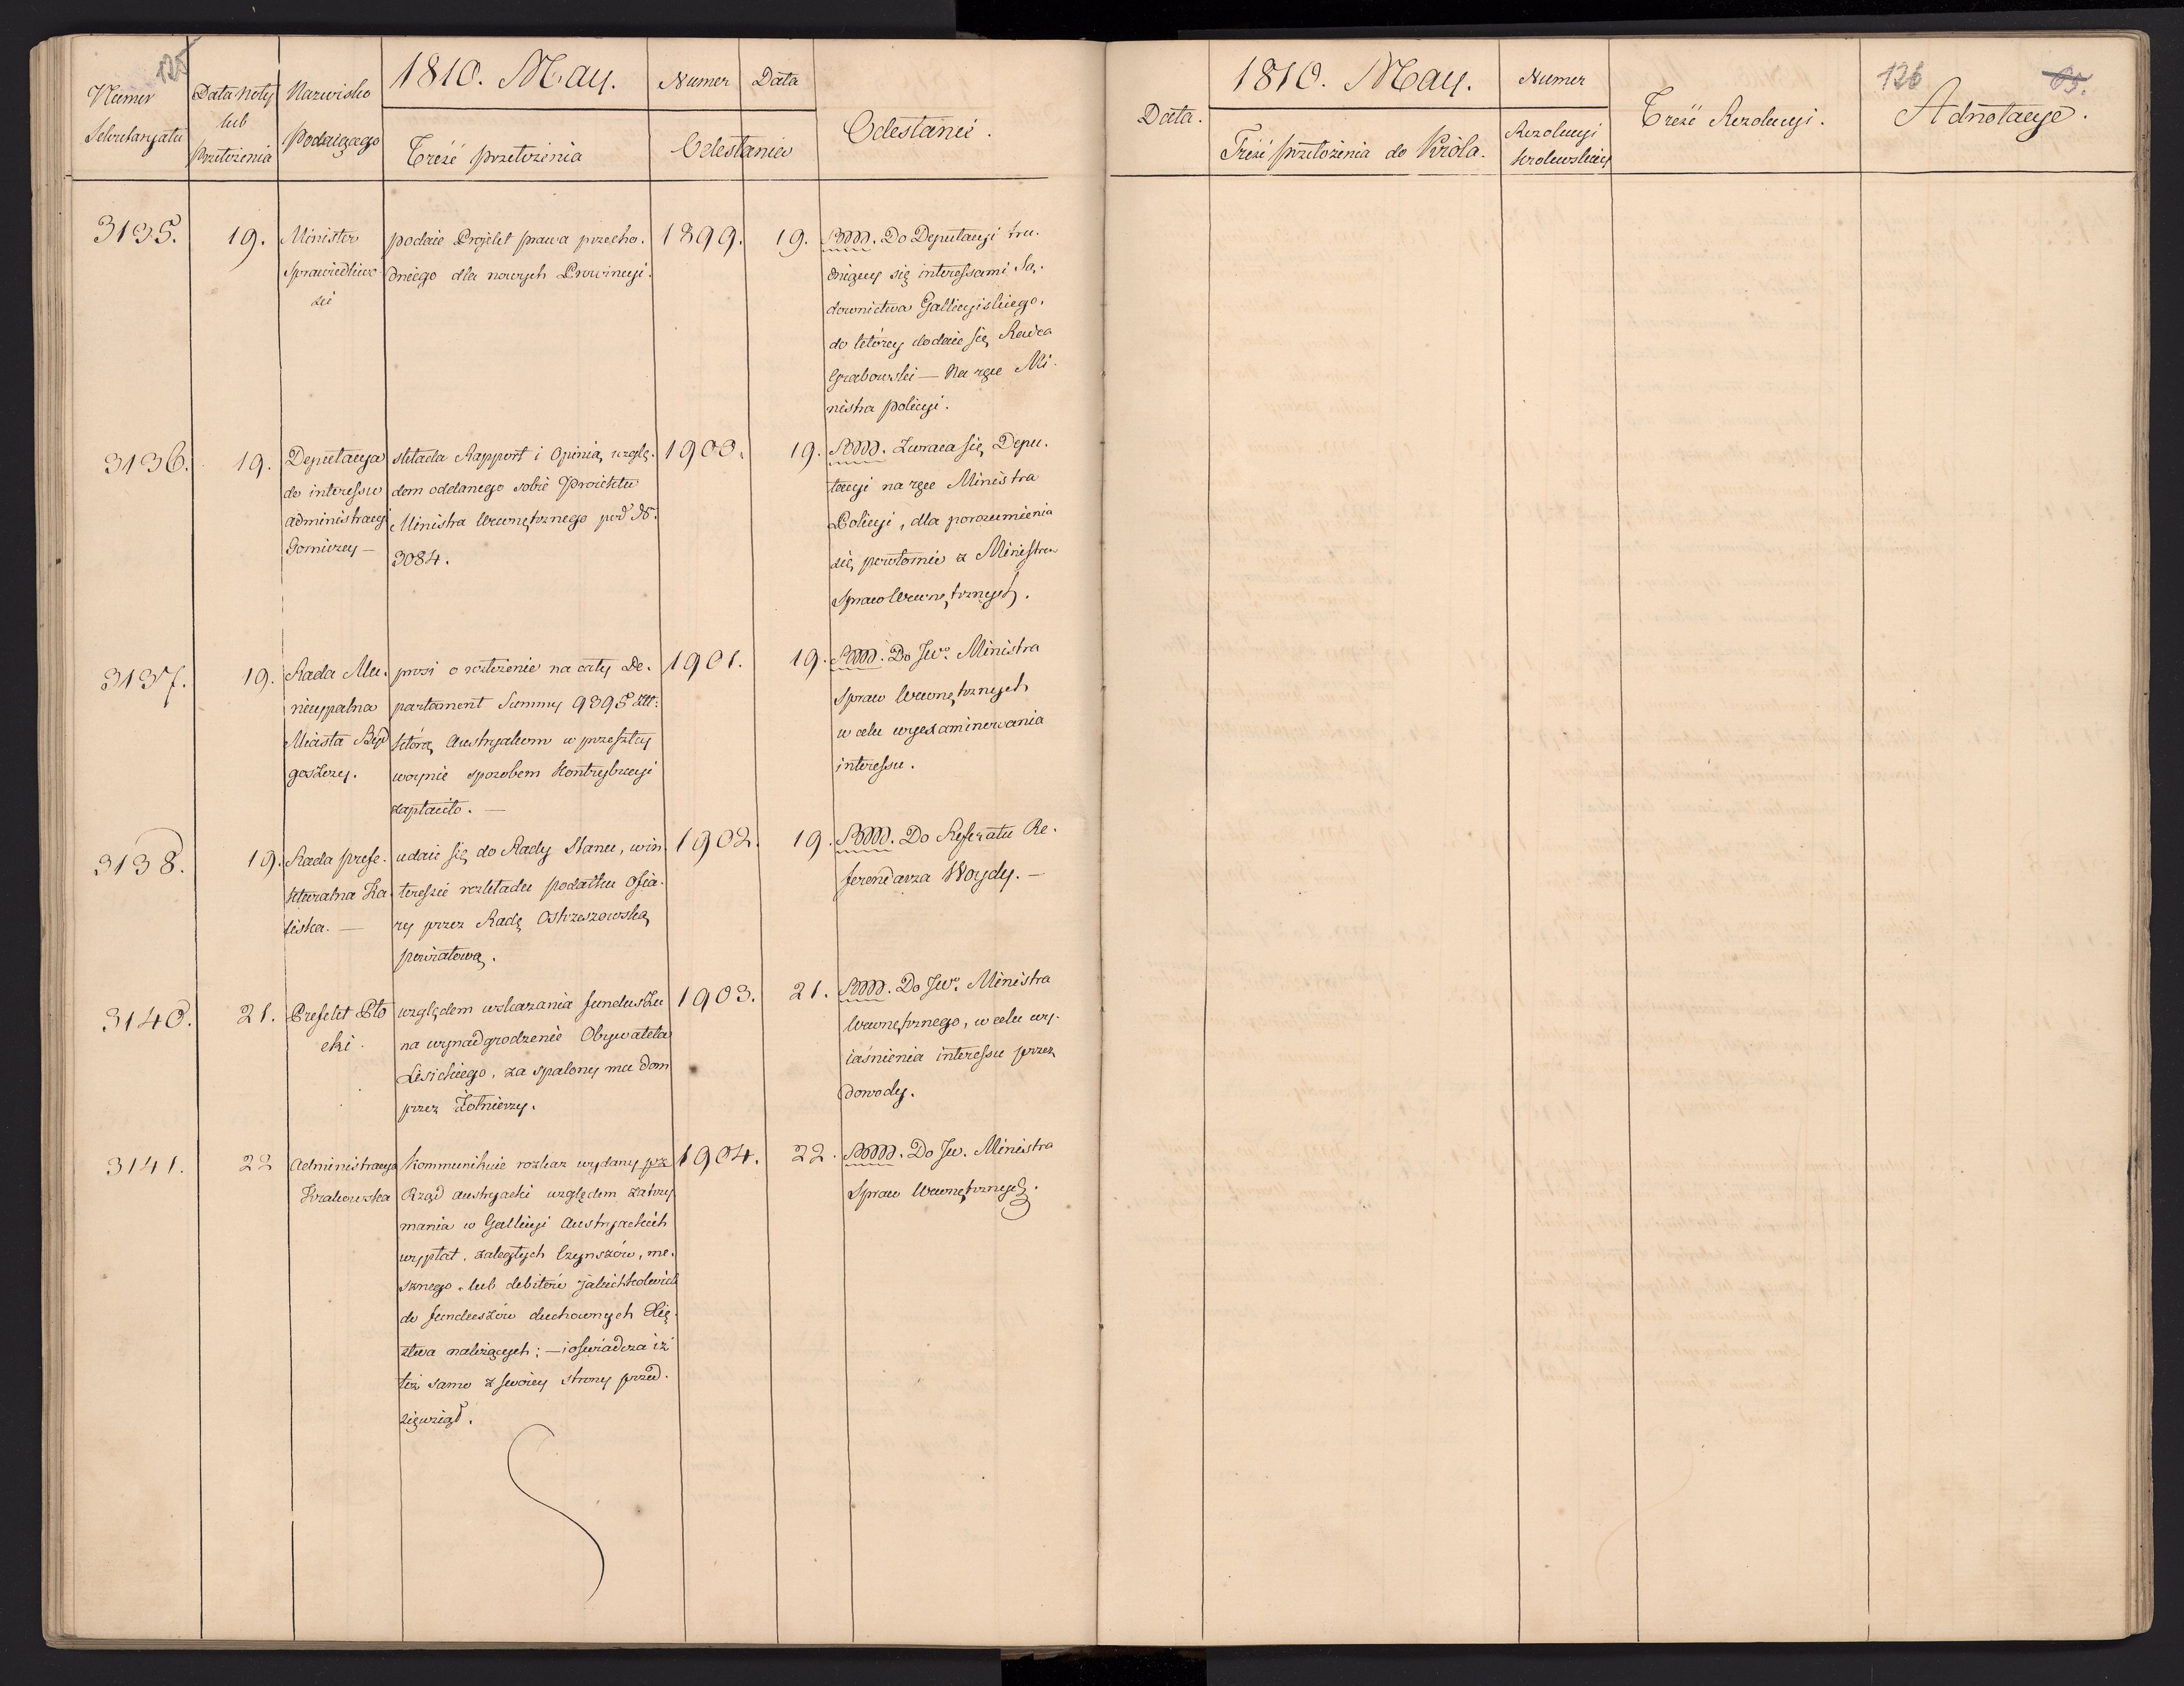 125
1810. May.
Numer Sekretaryatu
Data Noty lub Przełożenia
Nazwisko Podaiącego
Treść przełożenia
Numer Data
Odesłania
Odesłanie.
3135.
19.
Minister
Sprawiedliwo-
ści
podaie Projekt prawa przecho-
dniego dla nowych Prowincyi.
1899.
19.
Do Deputacyi tru-
dniącey się interessami Są-
downictwa Gallicyiskiego,
do którey dodaie się Radca
Grabowski — Na ręce Mi-
nistra policyi.
3136.
19.
Deputacya
do interessu
administracyi
Gorniczey —
składa Rapport i Opinią wzglę-
dem oddanego sobie Proiektu
Ministra Wewnętrznego pod N°
3084.
1900.
19.
Zwraca się Depu-
tacyi na ręce Ministra
Policyi, dla porozumienia
się powtornie z Ministrem
Spraw Wewnętrznych.
3137.
19.
Rada Mu-
nicypalna
Miasta Byd
goszczy.
prosi o rozłożenie na cały De-
partament Summy 9395 Złł:
którą Austryakom w przeszłey
woynie sposobem Kontrybucyi
zapłaciło. —
1901.
19.
Do JW° Ministra
Spraw Wewnętrznych
w celu wyexaminowania
interessu.
3138.
19.
Rada prefe-
kturalna Ka-
liska. —
udaie się do Rady Stanu, w in-
teressie rozkładu podatku Ofia-
ry przez Radę Ostrzeszowską
powiatową.
1902.
19.
Do Referatu Re-
ferendarza Woydy. —
3140.
21.
Prefekt Pło
cki.
względem wskazania funduszu
na wynadgrodzenie Obywatela
Lesickiego, za spalony mu dom
przez Żołnierzy.
1903.
21.
Do JW° Ministra
Wewnętrznego, w celu wy-
iaśnienia interessu przez
dowody.
3141.
22
Administracya
Krakowska
Kommunikuie rozkaz wydany prz
Rząd austryacki względem zatrzy
mania w Gallicyi Austryackiéh
wypłat zaległych Czynszów, me-
sznego lub debitów jakichkolwiek
do funduszów duchownych Xię-
stwa należących; — i oświadcza iż
też samo z swoiey strony przed-
sięwziął.
1904.
22.
Do JW. Ministra
Spraw Wewnętrznych.
126
65.
1810. May.
Data.
Treść przełożenia do Króla.
Numer
Rezolucyi
Krolewskiey
Treść Rezolucyi.
Adnotacye.